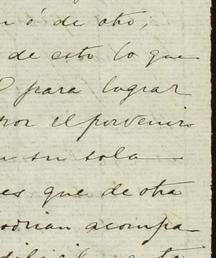 ó de otro;
de esto lo que
para lograr
por el porvenir
en su sola
es que de otra
podrian acompa